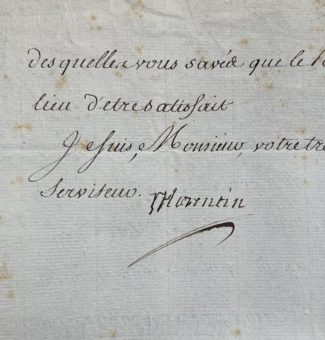 desquelles vous savés que le
lieu d'etre satisfait
Je suis, Monsieur, votre tr
serviteur.